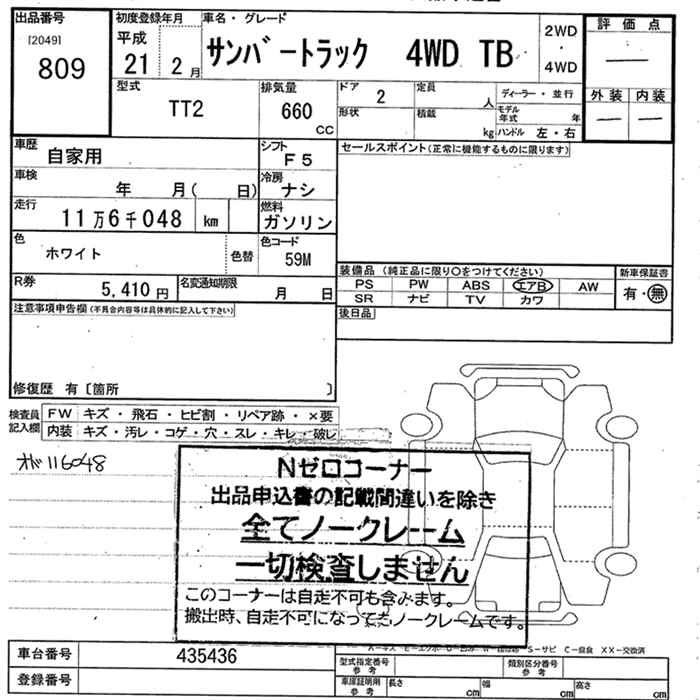 出品番号
[2049]
809
初度登録年月
平成
21 2月
車名・グレード
サンバートラック 4WD TB
2WD
・
4WD
評価点
—
外装 内装
— —
型式
TT2
排気量
660
cc
ドア
2
定員
人
ディーラー・並行
形状
積載
kg
モデル年式 年
ハンドル 左・右
車歴
自家用
シフト
F5
セールスポイント(正常に機能するものに限ります)
車検
年 月( 日)
冷房
ナシ
走行
11万6千048 km
燃料
ガソリン
色
ホワイト
色替
色コード
59M
装備品(純正品に限り○をつけてください)
PS PW ABS エアB AW
SR ナビ TV カワ
新車保証書
有・無
R券
5,410円
名変通知期限
月 日
後日品
注意事項申告欄(不具合内容等は具体的に記入して下さい)
修復歴 有〔箇所 〕
検査員
記入欄
FW キズ・飛石・ヒビ割・リペア跡・×要
内装 キズ・汚レ・コゲ・穴・スレ・キレ・破レ
オド116048
Nゼロコーナー
出品申込書の記載間違いを除き
全てノークレーム
一切検査しません
このコーナーは自走不可も含みます。
搬出時、自走不可になってもノークレームです。
S-サビ C-腐食 XX-交換済
車台番号
435436
登録番号
型式指定番号
参考
類別区分番号
参考
車庫証明用
参考
長さ
cm
幅
cm
高さ
cm